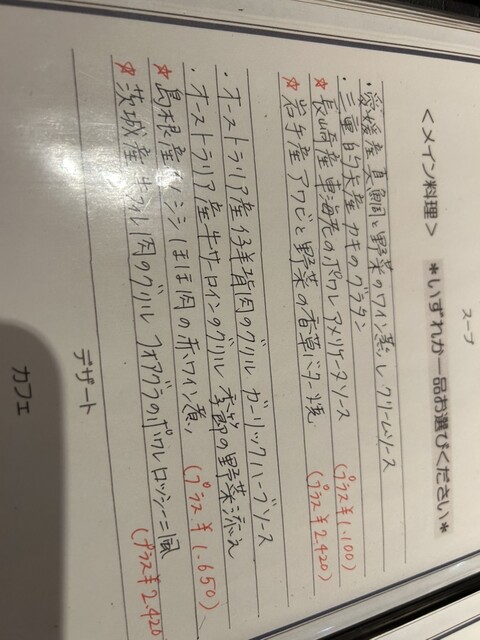 スープ
<メイン料理> *いずれか一品お選びください*
・愛媛産 真鯛と野菜のワイン蒸し クリームソース
・三重 的矢産 カキのグラタン
☆長崎産 車海老のポワレ アメリケーヌソース (プラス¥1.100)
☆岩手産 アワビと野菜の香草バター焼 (プラス¥2.420)
・オーストラリア産 仔羊背肉のグリル ガーリックハーブソース
・オーストラリア産 牛サーロインのグリル 季節の野菜添え
☆島根産 イノシシほほ肉の赤ワイン煮 (プラス¥1.650)
☆茨城産 牛フィレ肉のグリル フォアグラのポワレ ロッシーニ風 (プラス¥2.420
デザート
カフェ